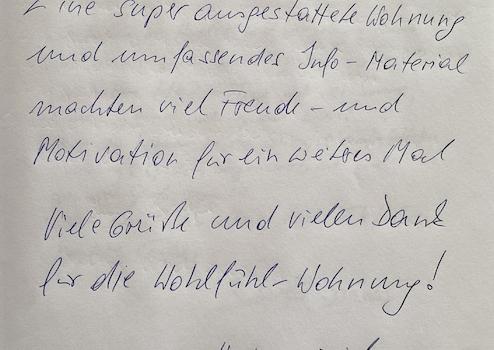 Eine super ausgestattete Wohnung
und umfassendes Info-Material
machten viel Freude - und
Motivation für ein weiteres Mal
Viele Grüße und vielen Dank
für die Wohlfühl-Wohnung!